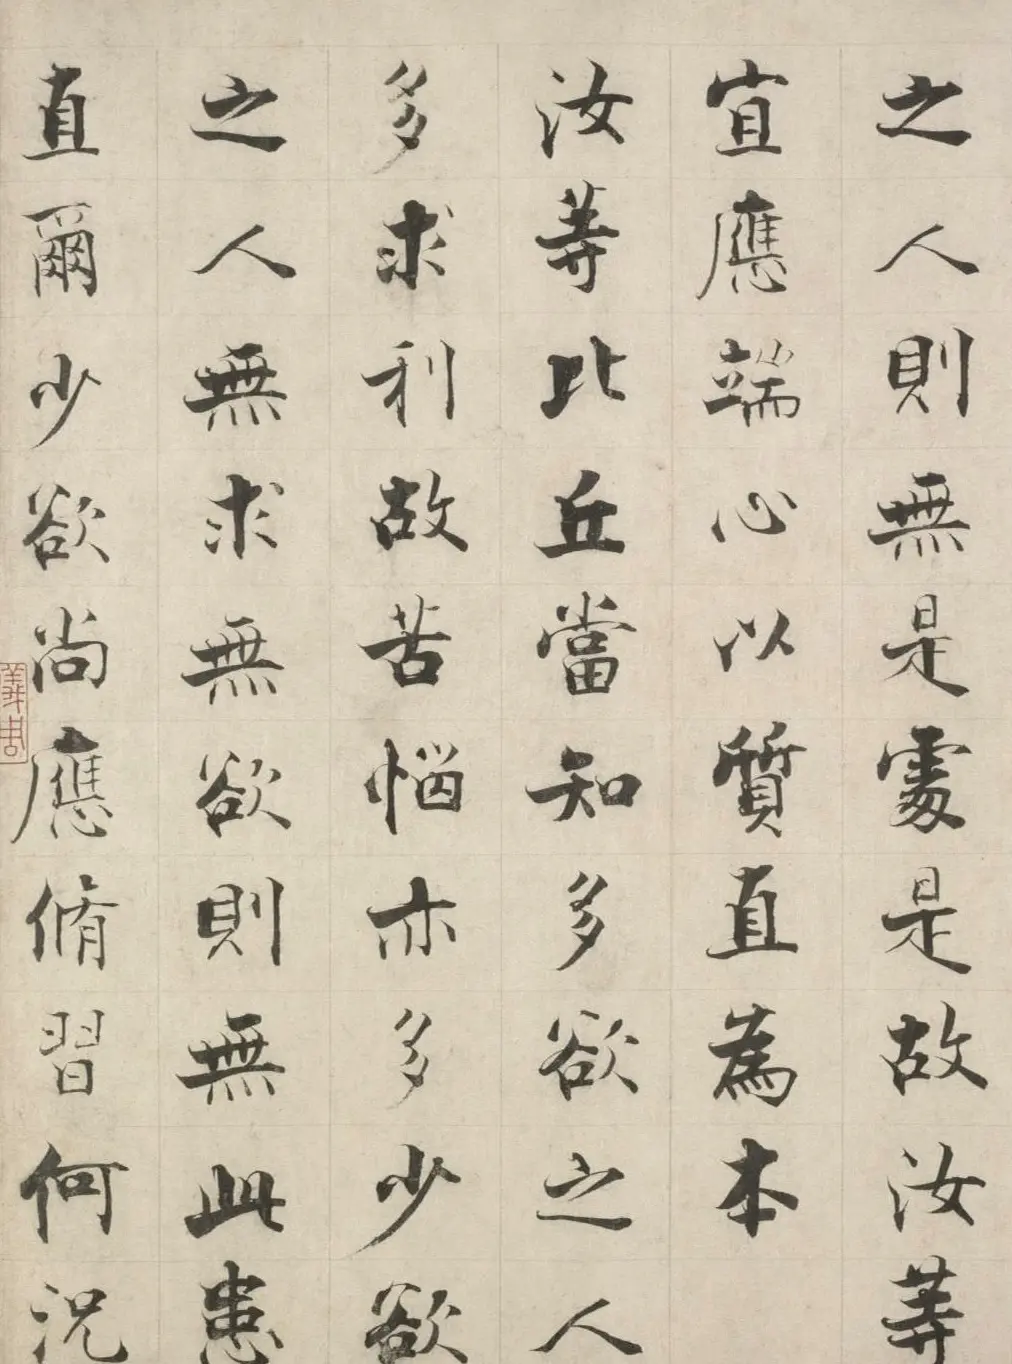 之人則無是處是故汝等
宜應端心以質直為本
汝等比丘當知多欲之人
多求利故苦惱亦多少欲
之人無求無欲則無此患
直爾少欲尚應脩習何況